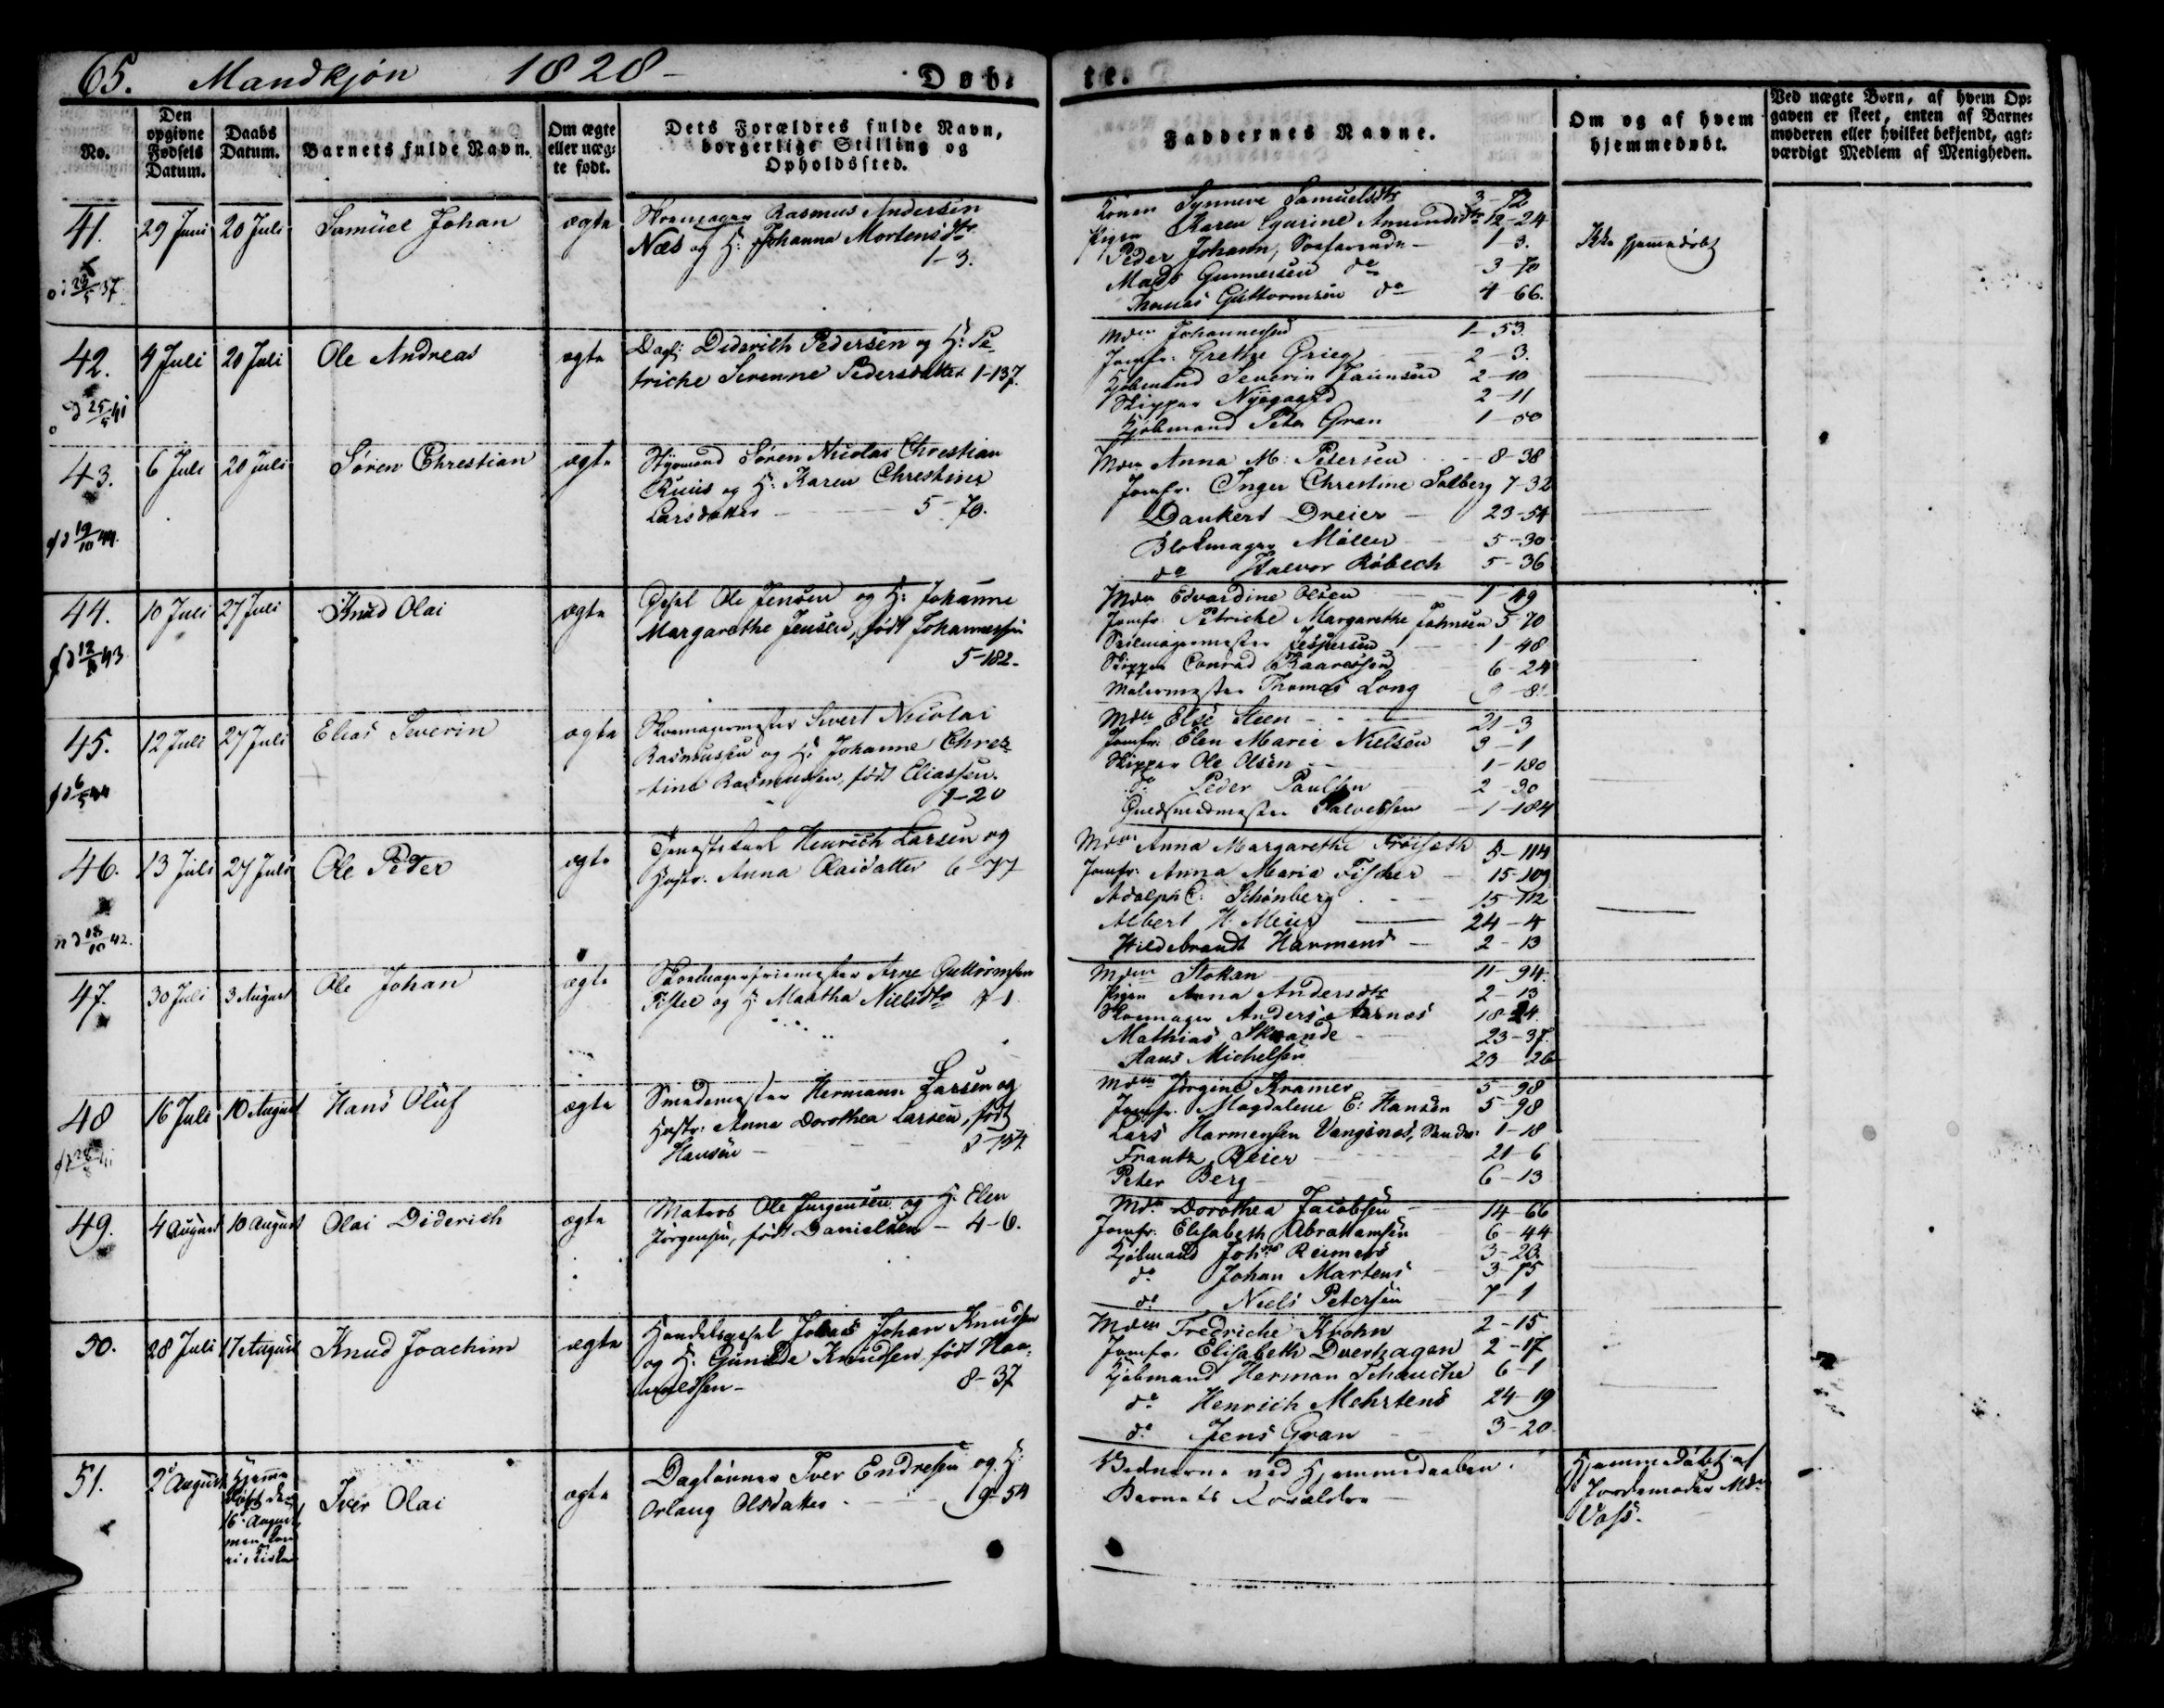 65. Mandkjøn 1828 -
Døb-
te.
No.
Den
opgivne
Fødsels
Datum.
Daabs
Datum.
Barnets fulde Navn.
Om ægte
eller uæg-
te født.
Dets Forældres fulde Navn,
borgerlige Stilling og
Opholdssted.
Faddernes Navne.
Om og af hvem
hjemmedøbt.
Ved uægte Børn, af hvem Op-
gaven er skeet, enten af Barne-
moderen eller hvilket bekjendt, agt-
værdigt Medlem af Menigheden.
41.
29 Juni
20 Juli
Samuel Johan
ægte
Skomager Rasmus Andersen
Næs og H: Johanna Mortensdtr
1-3.
Konen Synneve Samuelsdtr 3-72
Pigen Karen Gurine Amundsdtr 12-24
Peder Johann, Søefarende - 1-3.
Mads Gunnersen do 3-70
Thomas Guttormsen do 4-66.
Ikke hjemmedøbt
42.
4 Juli
20 Juli
Ole Andreas
ægte
Dagl: Diderich Pedersen og H: Pe-
triche Serenne Pedersdatter 1-137.
Mdm Johannesen 1-53.
Jomfr: Grethe Grieg 2-3.
Kjøbmand Severin Jaunsen 2-10
Skipper Nygaard 2-11
Kjøbmand Peter Gran 1-50
43.
6 Juli
20 Juli
Søren Chrestian
ægte
Styrmand Søren Nicolai Chrestian
Ruus og H: Karen Chrestine
Larsdatter - 5-70.
Mdm Anna M: Petersen 8-38
Jomfr. Inger Chrestine Solberg 7-32
Dankert Dreier - 23-54
Blokmager Møller 5-30
do Halvor Røbech 5-36
44.
10 Juli
27 Juli
Knud Olai
ægte
Gesel Ole Jensen og H: Johanne
Margarethe Jensen, født Johannessen
5-182.
Mdm Edvardine Olsen 1-49
Jomfr: Petriche Margarethe Johnsen 5-70
Seilmagermester Jespersen 1-48
Skipper Conrad Kaaressen 6-24
Malermester Thomas Long
45.
12 Juli
27 Juli
Elias Severin
ægte
Skomagermester Sivert Nicolai
Rasmussen og H: Johanne Chres-
tine Rasmussen, født Eliassen.
1-20
Mdm Else Steen - 21-3
Jomfr: Elen Marie Nielsen 3-1
Skipper Ole Olsen - 1-180
do Peder Paulsen 2-30
Guldsmedmester Salvesen 1-184
46.
13 Juli
27 Juli
Ole Peder
ægte
Tjenestekarl Henrich Larsen og
Hustr. Anna Olaidatter 6-77
Mdm Anna Margarethe Frøiseth 5-114
Jomfr: Anna Maria Fischer - 15-109
Adolph C: Schönberg 15-112
Albert H: Meier 24-4
Hildebrandt Harmens - 2-13
47.
30 Juli
3 August
Ole Johan
ægte
Skomagerfriemester Arne Guttormsen
og H: Martha Nielsdtr 7-1
Mdm Stokan 11-94.
Pigen Anna Andersdtr 2-13
Skomager Anders Aarnæs 18-24.
Mathias Skrande - 23-37.
Hans Michelsen 23-26
48
16 Juli
10 August
Hans Oluf
ægte
Smedemester Hermann Larsen og
Hustr: Anna Dorothea Larsen, født
Hansen -
Mdm Jørgine Kramer 5-98
Jomfr. Magdalene E: Hansen 5-98
Lars Harmensen Vangsnes, 1-18
Frantz Beier 21-6
Peter Berg 6-13
49.
4 August
10 August
Olai Diderich
ægte
Matros Ole Jørgensen og H: Elen
Jørgensen, født Danielsen - 4-6.
Mdm Dorothea Jacobsen - 14-66
Jomfr. Elisabeth Abrahamsen 6-44
Kjøbmand Johs Reimers 3-20.
do Johan Martens 3-75
do Niels Petersen 7-1
50.
28 Juli
17 August
Knud Joachim
ægte
Handelsgesel Johan Knudsen
og H: Gunilde Knudsen født Haa-
8-37
Mdm Fredriche Krohn 2-15
Jomfr. Elisabeth Dverhagen 2-17
Kjøbmand Herman Schauche 6-1
do Henrich Mehrtens 24-19
do Jens Gran - 3-20
51.
2 August
Hjemme
døbt den
16 August
Iver Olai
ægte
Dagleunner Iver Endresen og H:
Orlaug Olsdatter - 9-54
Vidnerne ved Hjemmedaaben:
Barnets Forældre -
Hjemmedøbt af
Jordemoder Mdm
Voss.